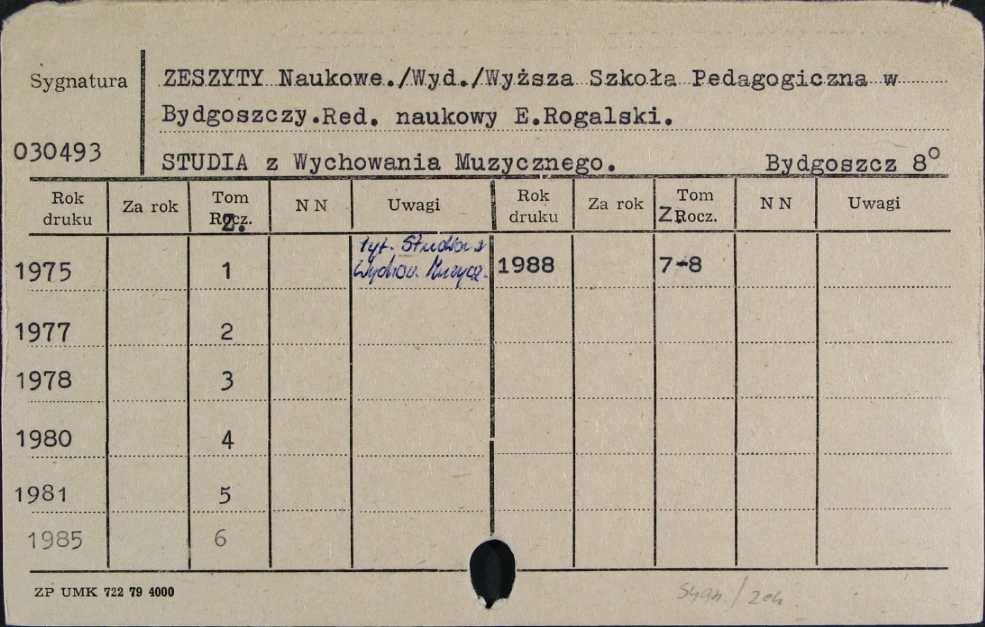 Sygnatura
ZESZYTY Naukowe./Wyd./Wyższa Szkoła Pedagogiczna w
Bydgoszczy.Red. naukowy E.Rogalski.
030493
STUDIA z Wychowania Muzycznego. Bydgoszcz 8°
Rok druku Za rok Tom Rocz. Z. N N Uwagi Rok druku Za rok Tom Z.Rocz. N N Uwagi
tyt. Studia z
1975 1 Wychow. Muzycz. 1988 7-8
1977 2
1978 3
1980 4
1981 5
1985 6
ZP UMK 722 79 4000